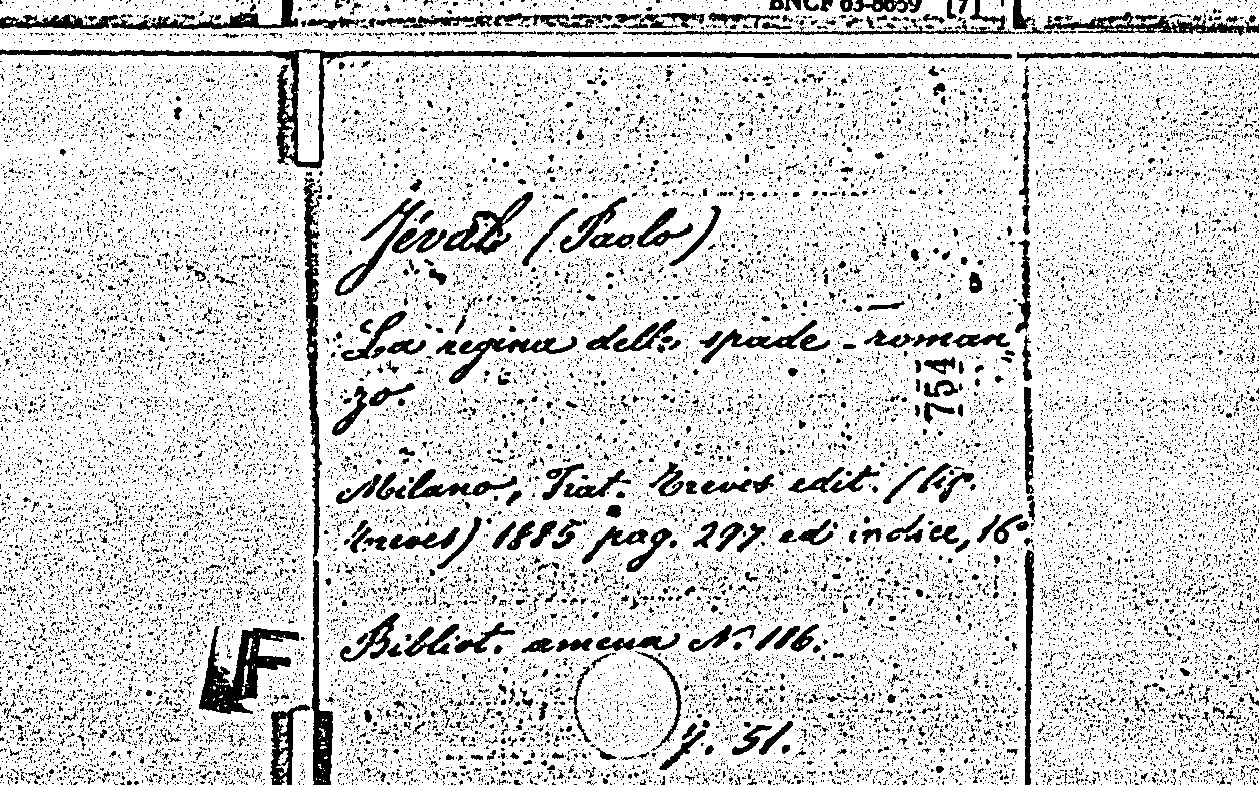 BNCF 63-8659 [7]
Féval (Paolo)
La regina delle spade - roman
zo.
754
Milano, Frat. Treves edit. (tip.
Treves) 1885 pag. 297 ed indice, 16°
Bibliot. amena N. 116.
51.